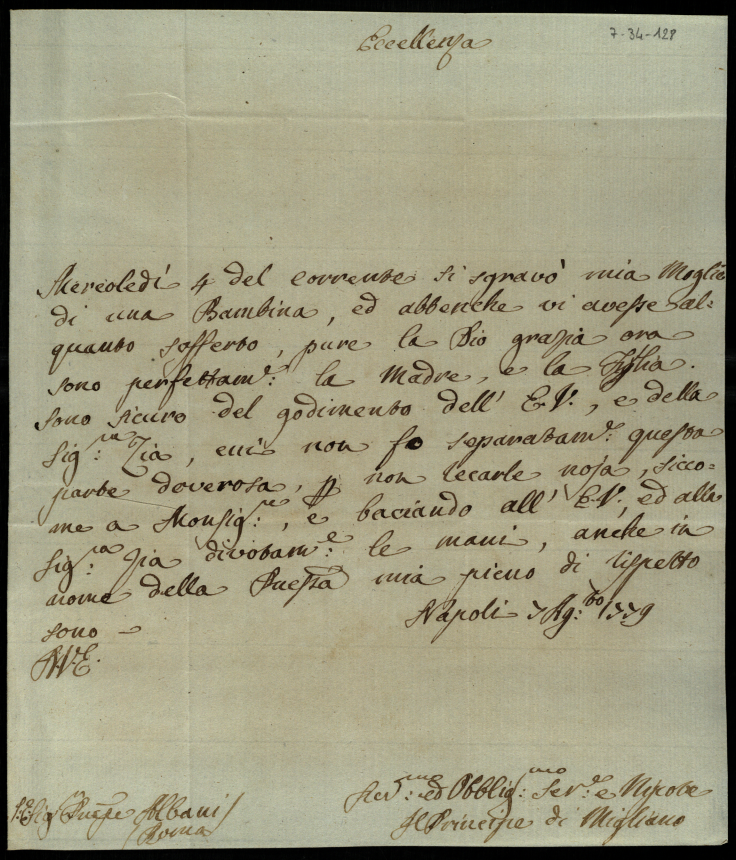 7-34-128
Eccellenza
Mercoledí 4 del corrente si sgravò mia Moglie
di una Bambina, ed abbenche vi avesse al:
quanto sofferto, pure la Dio grazia ora
sono perfettam.e: la Madre, e la Figlia.
sono sicuro del godimento dell' E.V., e della
sig.ra: Zia, cui non fo separatam.e: questa
parte doverosa, p non recarle noja, sicco:
me a Monsig.re:, e baciando all' E.V., ed alla
sig.ra: Zia divotam.e: le mani, anche in
nome della Pnessa mia pieno di rispetto
sono –
Napoli 7 Ag.to: 1779
D.V.E.
Sig. Pnpe Albani
Roma
Dev.mo: ed Obblig.mo: Ser.e: e Nipote
Il Principe di Migliano